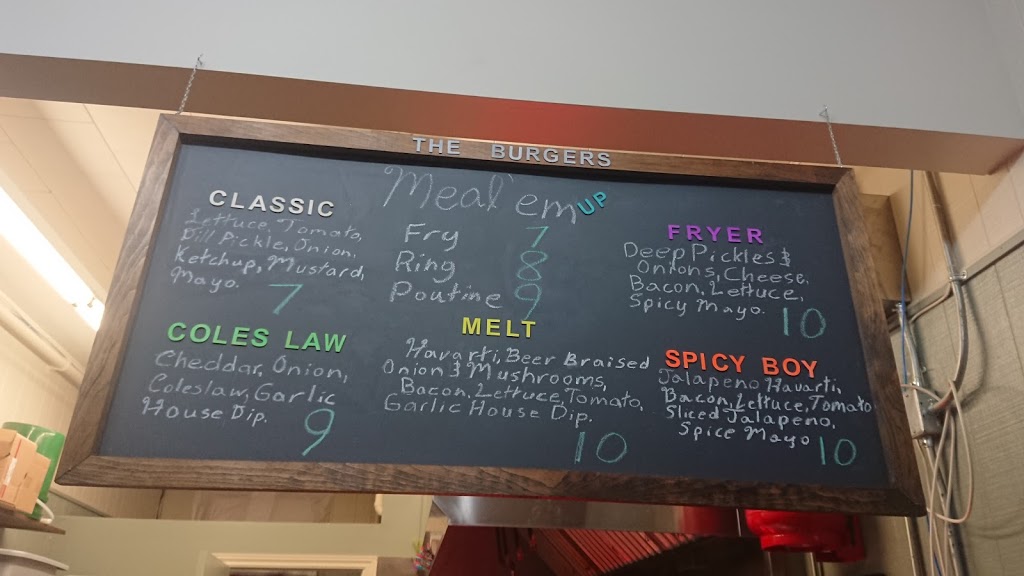 THE BURGERS
CLASSIC
Lettuce, Tomato,
Dill Pickle, Onion,
Ketchup, Mustard,
Mayo.
7
Meal'em UP
Fry 7
Ring 8
Poutine 9
FRYER
Deep Pickles &
Onions, Cheese,
Bacon, Lettuce,
Spicy Mayo.
10
COLES LAW
Cheddar, Onion,
Coleslaw, Garlic
House Dip.
9
MELT
Havarti, Beer Braised
Onion & Mushrooms,
Bacon, Lettuce, Tomato,
Garlic House Dip.
10
SPICY BOY
Jalapeno Havarti,
Bacon, Lettuce, Tomato
Sliced Jalapeno,
Spice Mayo
10